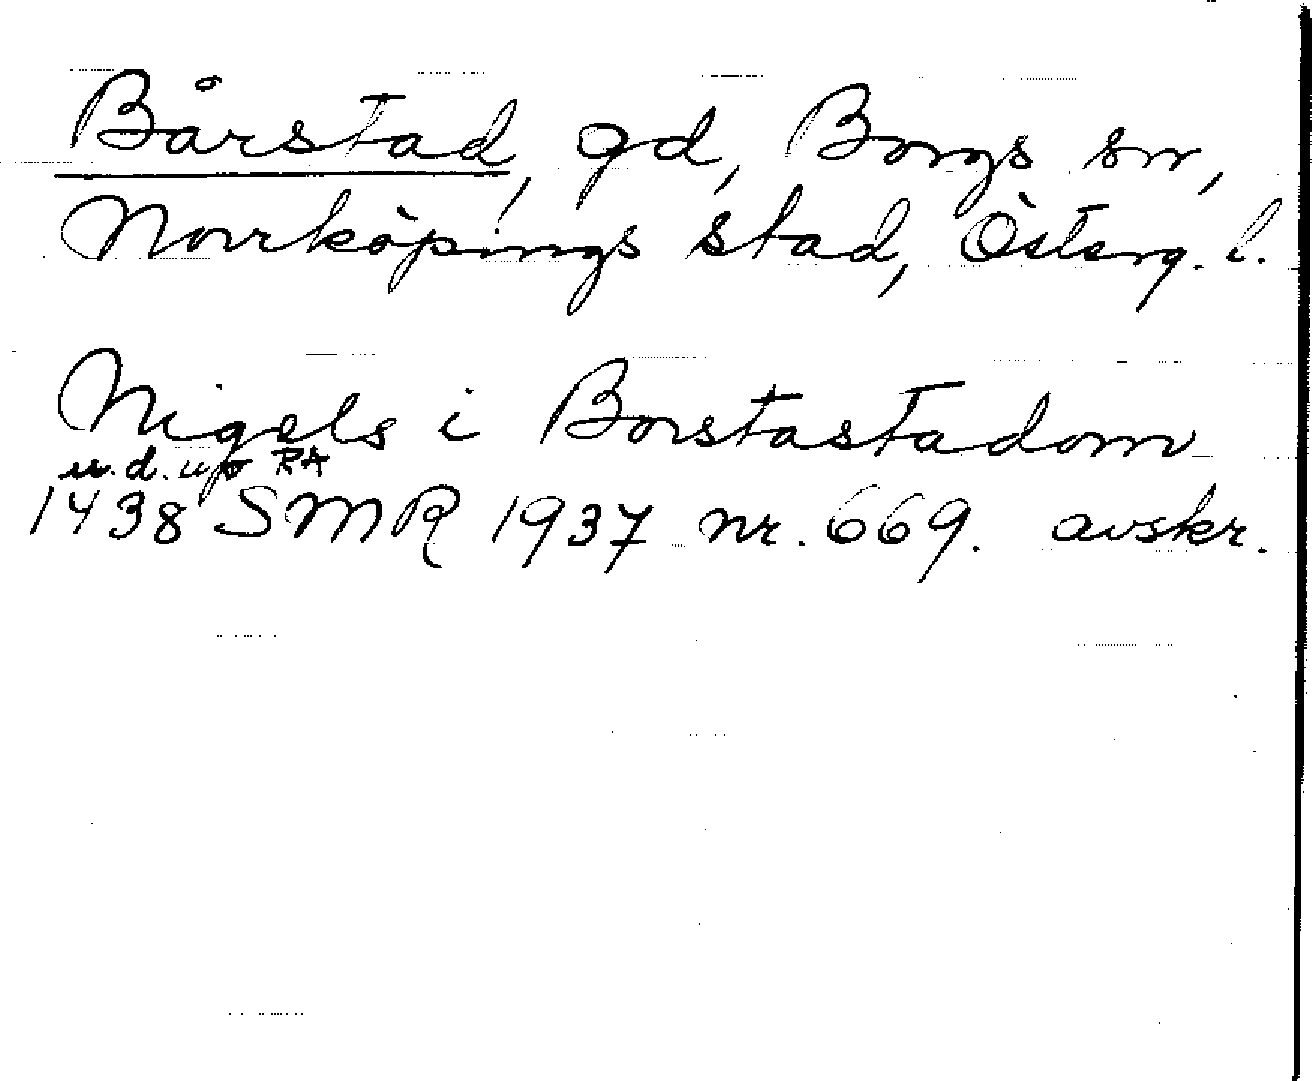 Bårstad, gd, Borgs sn,
Norrköpings stad, Österg. l.
Nigels i Borstastadom
u.d. upo RA
1438 SMR 1937 nr. 669. avskr.